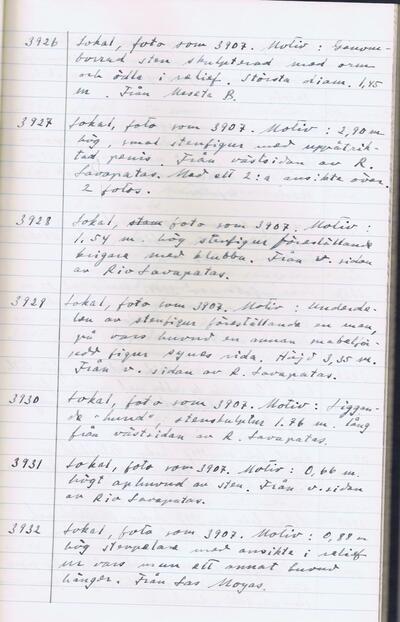 3926 Lokal, foto som 3907. Motiv: Genom-
borrad sten skulpterad med orm
och ödla i relief. Största diam. 1,45
m. Från Meseta B.
3927 Lokal, foto som 3907. Motiv: 2,90 m
hög, smal stenfigur med uppåtrik-
tad penis. Från västsidan av R.
Lavapatas. Med ett 2:a ansikte över.
2 fotos.
3928 Lokal, foto som 3907. Motiv:
1.54 m. hög stenfigur föreställande
krigare med klubba. Från v. sidan
av Rio Lavapatas.
3929 Lokal, foto som 3907. Motiv: Underde-
len av stenfigur föreställande en man,
på vars huvud en annan
figur synes rida. Höjd 3,35 m.
Från v. sidan av R. Lavapatas.
3930 Lokal, foto som 3907. Motiv: Liggan-
de "hund", stenskulptur 1.76 m. lång
från västsidan av R. Lavapatas.
3931 Lokal, foto som 3907. Motiv: 0,66 m.
högt aphuvud av sten. Från v. sidan
av Rio Lavapatas.
3932 Lokal, foto som 3907. Motiv: 0,88 m
hög stenpelare med ansikte i relief
ur vars mun ett annat huvud
hänger. Från Las Moyas.